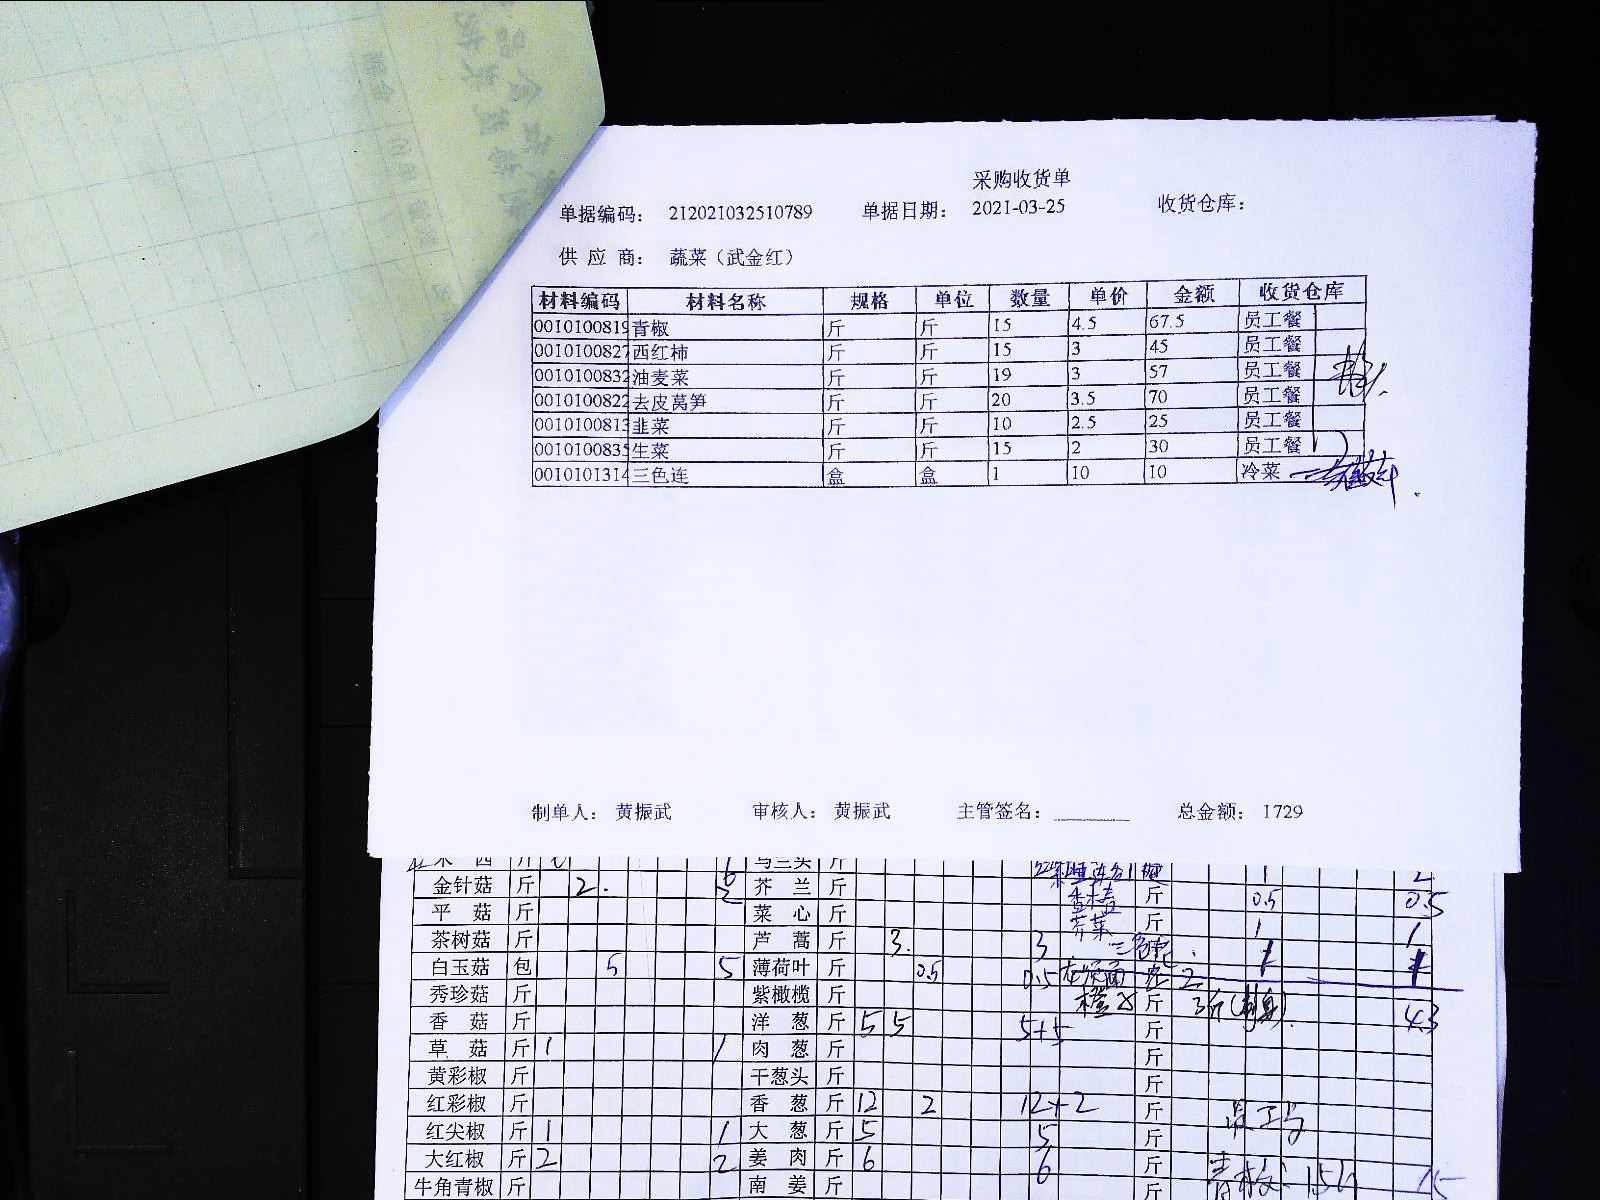 采购收货单
单据编码: 212021032510789 单据日期: 2021-03-25 收货仓库:
供 应 商: 蔬菜(武金红)
材料编码 材料名称 规格 单位 数量 单价 金额 收货仓库
0010100819 青椒 斤 斤 15 4.5 67.5 员工餐
0010100827 西红柿 斤 斤 15 3 45 员工餐
0010100832 油麦菜 斤 斤 19 3 57 员工餐
0010100822 去皮莴笋 斤 斤 20 3.5 70 员工餐
0010100813 韭菜 斤 斤 10 2.5 25 员工餐
0010100835 生菜 斤 斤 15 2 30 员工餐
0010101314 三色连 盒 盒 1 10 10 冷菜
制单人: 黄振武 审核人: 黄振武 主管签名: 总金额: 1729
金针菇 斤 2. 2 芥 兰 斤 斤 0.5 0.5
平 菇 斤 菜 心 斤 芥菜 斤 1 1
茶树菇 斤 芦 蒿 斤 3. 3 1 1
白玉菇 包 5 5 薄荷叶 斤 0.5 0.5 2
秀珍菇 斤 紫橄榄 斤 橙 斤 3斤 43
香 菇 斤 洋 葱 斤 5 5 5+5 斤
草 菇 斤 1 1 肉 葱 斤 斤
黄彩椒 斤 干葱头 斤 斤
红彩椒 斤 香 葱 斤 12 2 12+2 斤
红尖椒 斤 1 1 大 葱 斤 5 5 斤
大红椒 斤 2 2 姜 肉 斤 6 6 斤
牛角青椒 斤 南 姜 斤 斤 青椒: 15斤 15